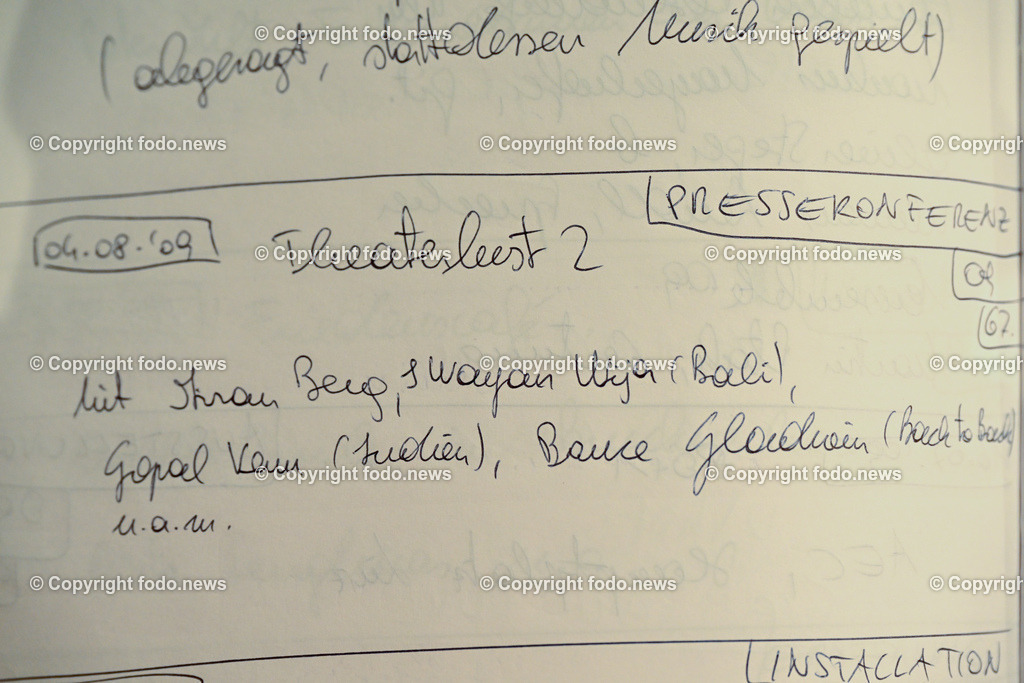 (abgesagt, stattdessen Musik gespielt)
PRESSEKONFERENZ
04.08.'09 Theaterlust 2
09
67.
mit Ikram Berg, I Wayan Wija (Bali),
Gopal Ram (Indien), Bruce Gladwin (Back to Back)
u.a.m.
INSTALLATION
© Copyright fodo.news © Copyright fodo.news © Copyrigh
© Copyright fodo.news © Copyright fodo.news © Copyrigh
© Copyright fodo.news © Copyright fodo.news © Copyrigh
© Copyright fodo.news © Copyright fodo.news © Copyrigh
© Copyright fodo.news © Copyright fodo.news © Copyrigh
© Copyright fodo.news © Copyright fodo.news © Copyrigh